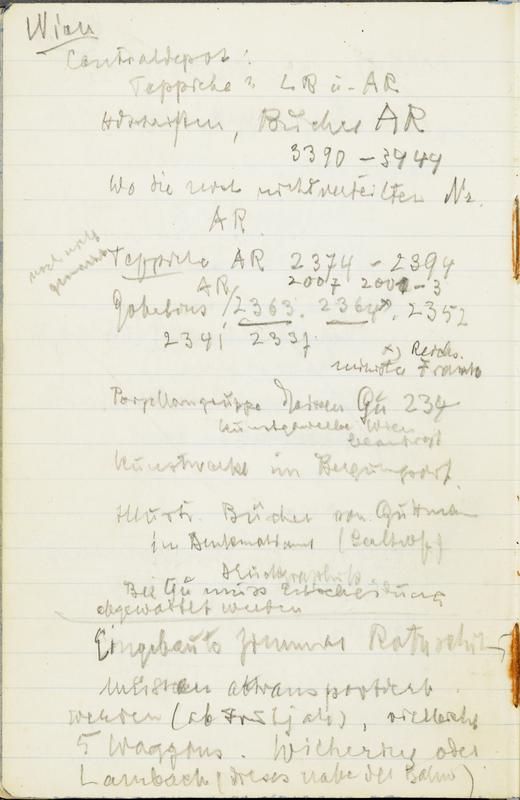 Wien
Centraldepot:
Teppiche? LB u. AR
Bücher AR
3390 – 3444
Wo die noch nicht verteilten Nr.
AR.
Teppiche AR 2374 – 2394
AR 2007 2001 – 3
Gobelins 2363. 2364 x), 2352
2341 2337.
x) Reichs.
minister Frank
Porzellangruppe Meissen Gu 234
Kunstgewerbe Wien
beantragt
Kunstwerke im Bergungsort.
Illustr. Bücher von Gutmann
in Denkmalamt
Bei Gu muss Entscheidung
abgewartet werden
Eingebaute Zimmer Rothschild
müssen abtransportiert
werden (ab Frühjahr), vielleicht
5 Waggons. Wilhering oder
Lambach (dieses nahe der Bahn)